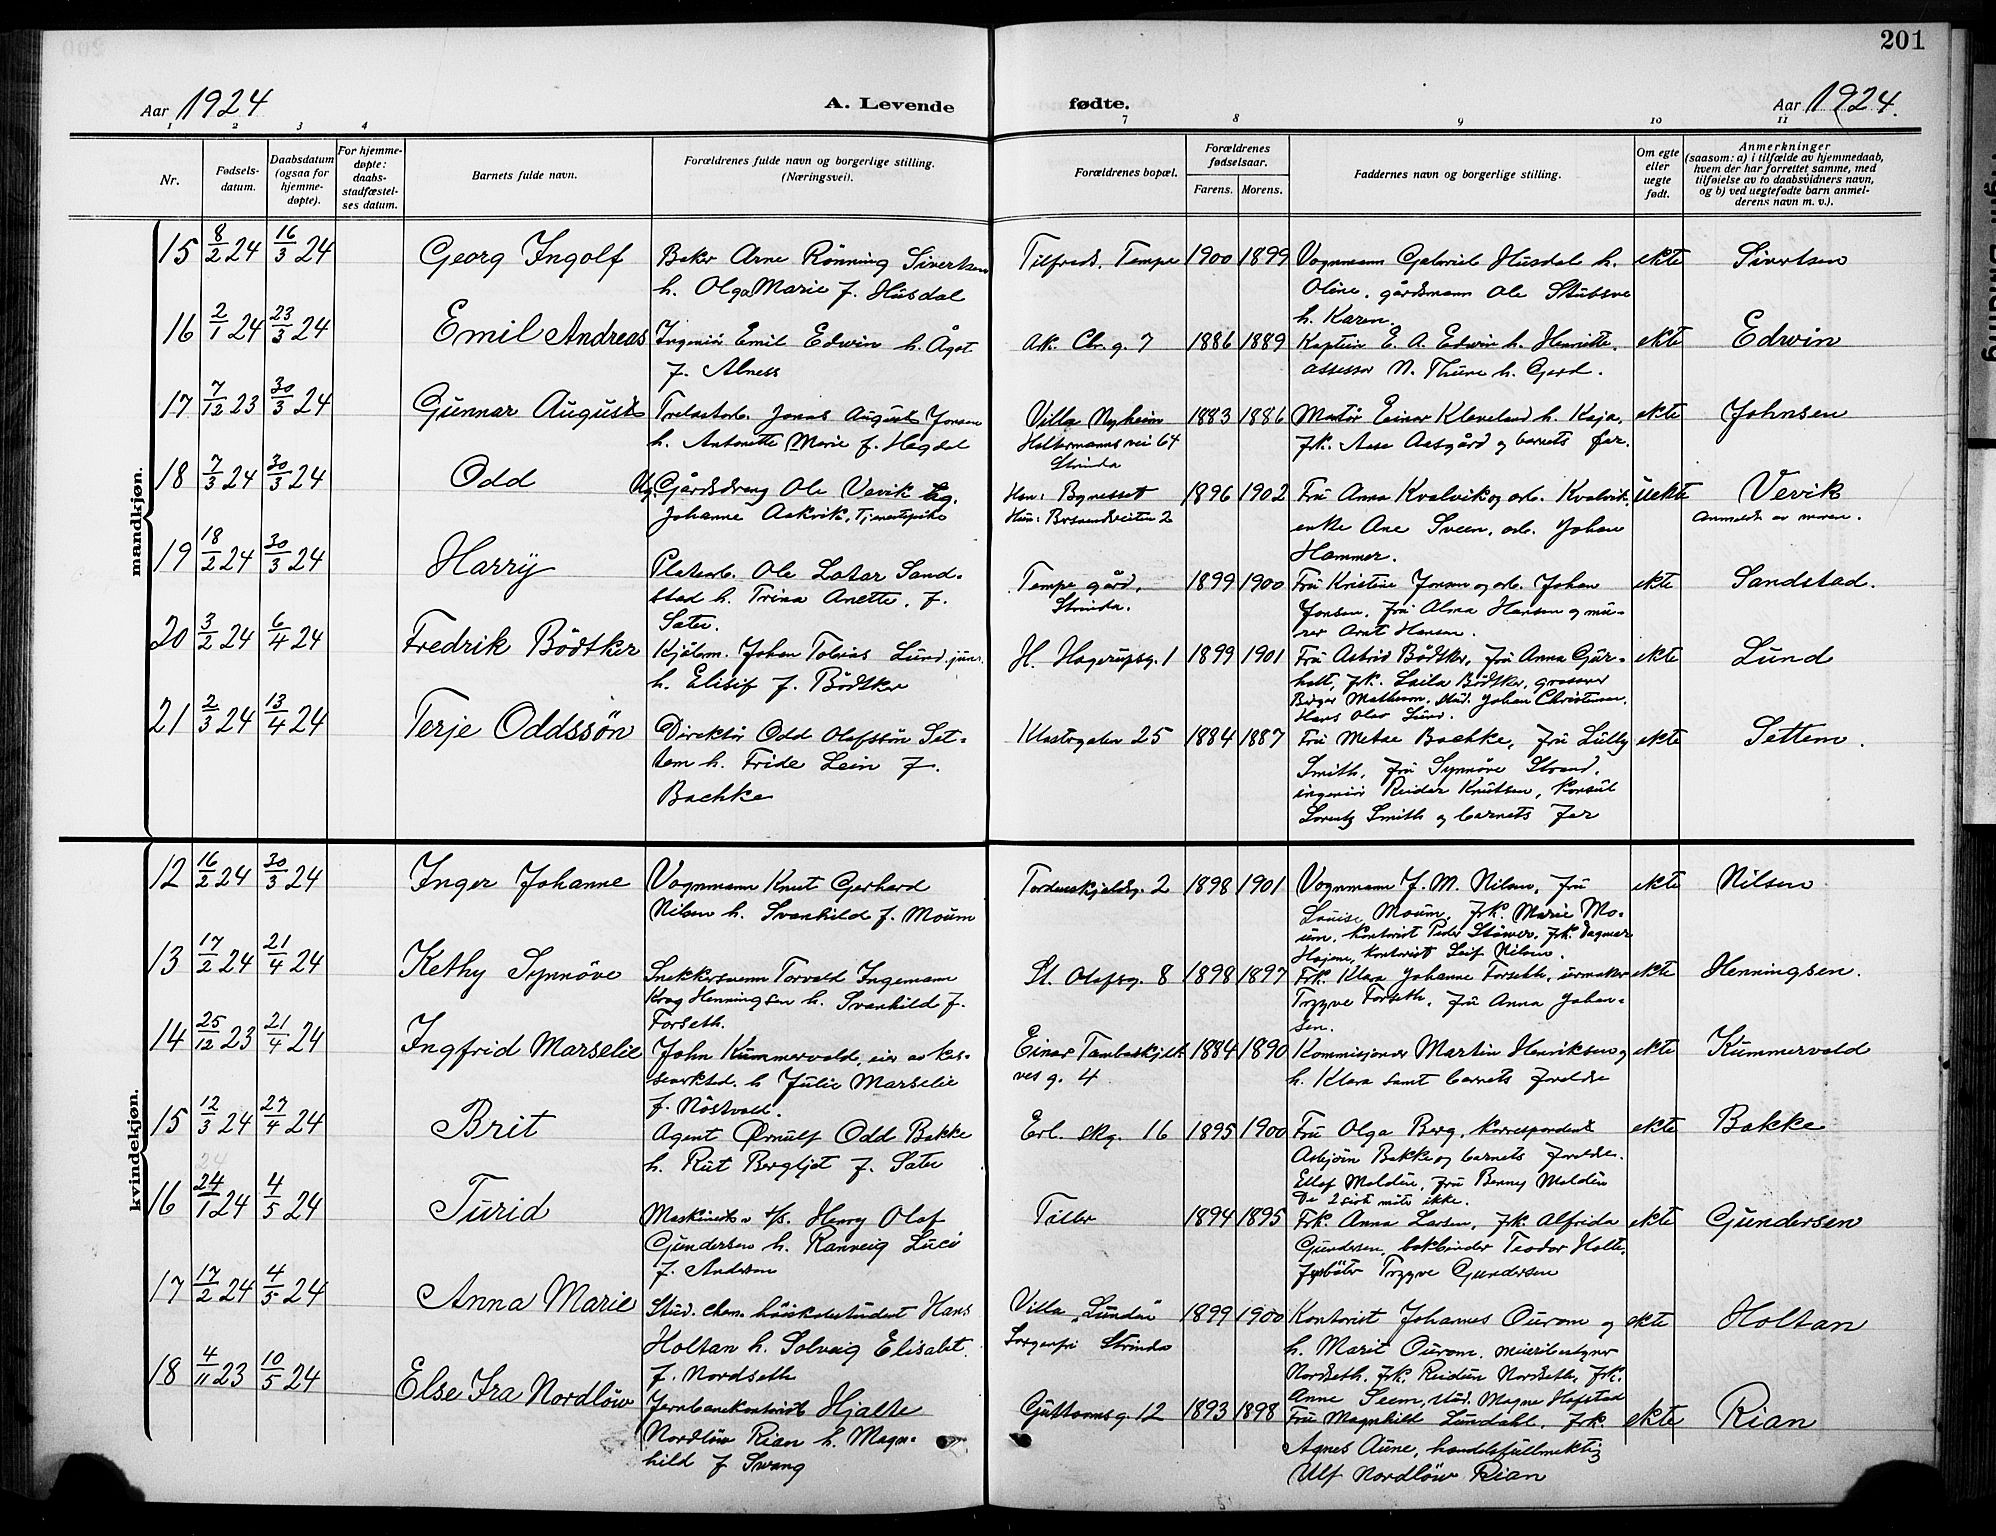 201
Aar 1924 A. Levende fødte. Aar 1924.
1 2 3 4 7 8 9 10 11
Nr.
Fødsels-
datum.
Daabsdatum
(ogsaa for
hjemme-
døpte).
For hjemme-
døpte:
daabs-
stadfæstel-
ses datum.
Barnets fulde navn.
Forældrenes fulde navn og borgerlige stilling.
(Næringsvei).
Forældrenes bopæl.
Forældrenes
fødselsaar.
Farens. Morens.
Faddernes navn og borgerlige stilling.
Om egte
eller
uegte
født.
Anmerkninger
(saasom: a) i tilfælde av hjemmedaab,
hvem der har forrettet samme, med
tilføielse av to daabsvidners navn,
og b) ved uegtefødte barn anmel-
derens navn m. v.).
mandkjøn.
15 8/2 24 16/3 24 Georg Ingolf
Baker Arne Rönning Sivertsen
h. Olga Marie f. Husdal
Tilfreds. Tempe 1900 1899
Vognmann Gabriel Husdal h.
Oline, gårdsmann Ole Stubsve
h. Karen.
ekte Sivertsen
16 2/1 24 23/3 24 Emil Andreas
Ingeniör Emil Edwin h. Ågot
f. Alness
Ask. Chr. g. 7 1886 1889
Kaptein E. A. Edwin h. Henriette,
assessor N. Thune h. Gerd.
ekte Edwin
17 7/12 23 30/3 24 Gunnar August
Trelastarb. Jonas August Jonsen
h. Antonette Marie f. Hegdal
Villa Nyheim
Holtermanns vei 64
Strinda
1883 1886
Montör Einar Kleveland h. Kaja,
frk. Aase Aasgård og barnets far.
ekte Johnsen
18 7/3 24 30/3 24 Odd
Ug. Gårdsdreng Ole Vevik ug.
Johanne Aakvik, Tjenestepike
Han: Bynesset
Hun: Brøsundveiten 2
1896 1902
Fru Anna Kvalvik og arb. Kvalvik,
enke Ane Sveen, arb. Johan
Hammer.
uekte Vevik
Anmeldt av moren.
19 18/2 24 30/3 24 Harry
Platearb. Ole Lotar Sand-
stad h. Trina Anette, f.
Sæter.
Tempe gård,
Strinda.
1899 1900
Fru Kristine Jonsen og arb. Johan
Jonsen, fru Alma Hansen og mu-
rer Arnt Hansen.
ekte Sandstad.
20 3/2 24 6/4 24 Fredrik Bödtker
Kjölem. Johan Tobias Lund jun.
h. Elisif f. Bödtker
H. Hagerupsg. 1 1899 1901
Fru Astrid Bödtker, fru Anna Gur-
holt, frk. Laila Bödtker, grosserer
Birger Mathesen, stud. Johan Christensen,
Hans Olav Lund.
ekte Lund
21 2/3 24 13/4 24 Terje Oddssön
Direktör Odd Olafssön Set-
tem h. Fride Lein f.
Bachke
Klostergaten 25 1884 1887
Fru Metae Bachke, fru Lully
Smith, fru Synnöve Strand,
ingeniör Reidar Knutsen, konsul
Lorentz Smith og barnets far
ekte Settem.
kvindekjøn.
12 16/2 24 30/3 24 Inger Johanne
Vognmann Knut Gerhard
Nilsen h. Svanhild f. Moum
Tordenskjoldsg. 2 1898 1901
Vognmann J. M. Nilsen, fru
Louise Moum, frk. Marie Mo-
um, kontorist Peder Stöwer, frk. Dagmar
Hojem, kontorist Leif Nilsen.
ekte Nilsen
13 17/2 24 21/4 24 Kethy Synnöve
Snekkersvenn Torvald Ingemann
Krog Henningsen h. Svanhild f.
Forseth.
St. Olafsg. 8 1898 1897
Frk. Klara Johanne Forseth, urmaker
Trygve Forseth, fru Anna Johan-
sen.
ekte Henningsen.
14 25/12 23 21/4 24 Ingfrid Marselie
John Kummervold, eier av kas-
severksted. h Julie Marselie
f. Nöstvold.
Einar Tambaskjelk
ves g. 4
1884 1890
Kommisjonær Martin Henriksen og
h. Klara samt barnets foreldre
ekte Kummervold
15 12/3 24 27/4 24 Brit
Agent Ørnulf Odd Bakke
h. Rut Bergljot f. Sæter
Erl. skg. 16 1895 1900
Fru Olga Berg, korrespondent
Asbjörn Bakke og barnets foreldre.
Ellef Moldén, fru Benny Moldén
De 2 sist møtte ikke.
ekte Bakke
24
16 24/1 24 4/5 24 Turid
Maskinist v/s. Henry Olaf
Gundersen h. Ranveig Luci
f. Andersen
Tiller 1894 1895
Frk. Anna Larsen, frk Alfrida
Gundersen, bokbinder Teodor Holte,
fyrböter Trygve Gundersen
ekte Gundersen
17 17/2 24 4/5 24 Anna Marie
Stud. chem. höiskolestudent Hans
Holtan h. Solveig Elisabet.
f. Nordseth
Villa „Lunden"
Sorgenfri Strinda
1899 1900
Kontorist Johannes Ourom og
h. Marit Ourom, meieribestyrer
Nordseth, frk. Reidun Nordseth, frk.
Anne Seem, stud. Magne Hofstad
ekte Holtan
18 4/11 23 10/5 24 Else Fra Nordlöw
Jernbanekontorist Hjalte
Nordlöw Rian h. Magn-
hild f Svang
Guttormsg. 12 1893 1898
Fru Magnhild Lundahl, frk.
Agnes Aune, handelsfullmektig
Ulf Nordlöw Rian
ekte Rian